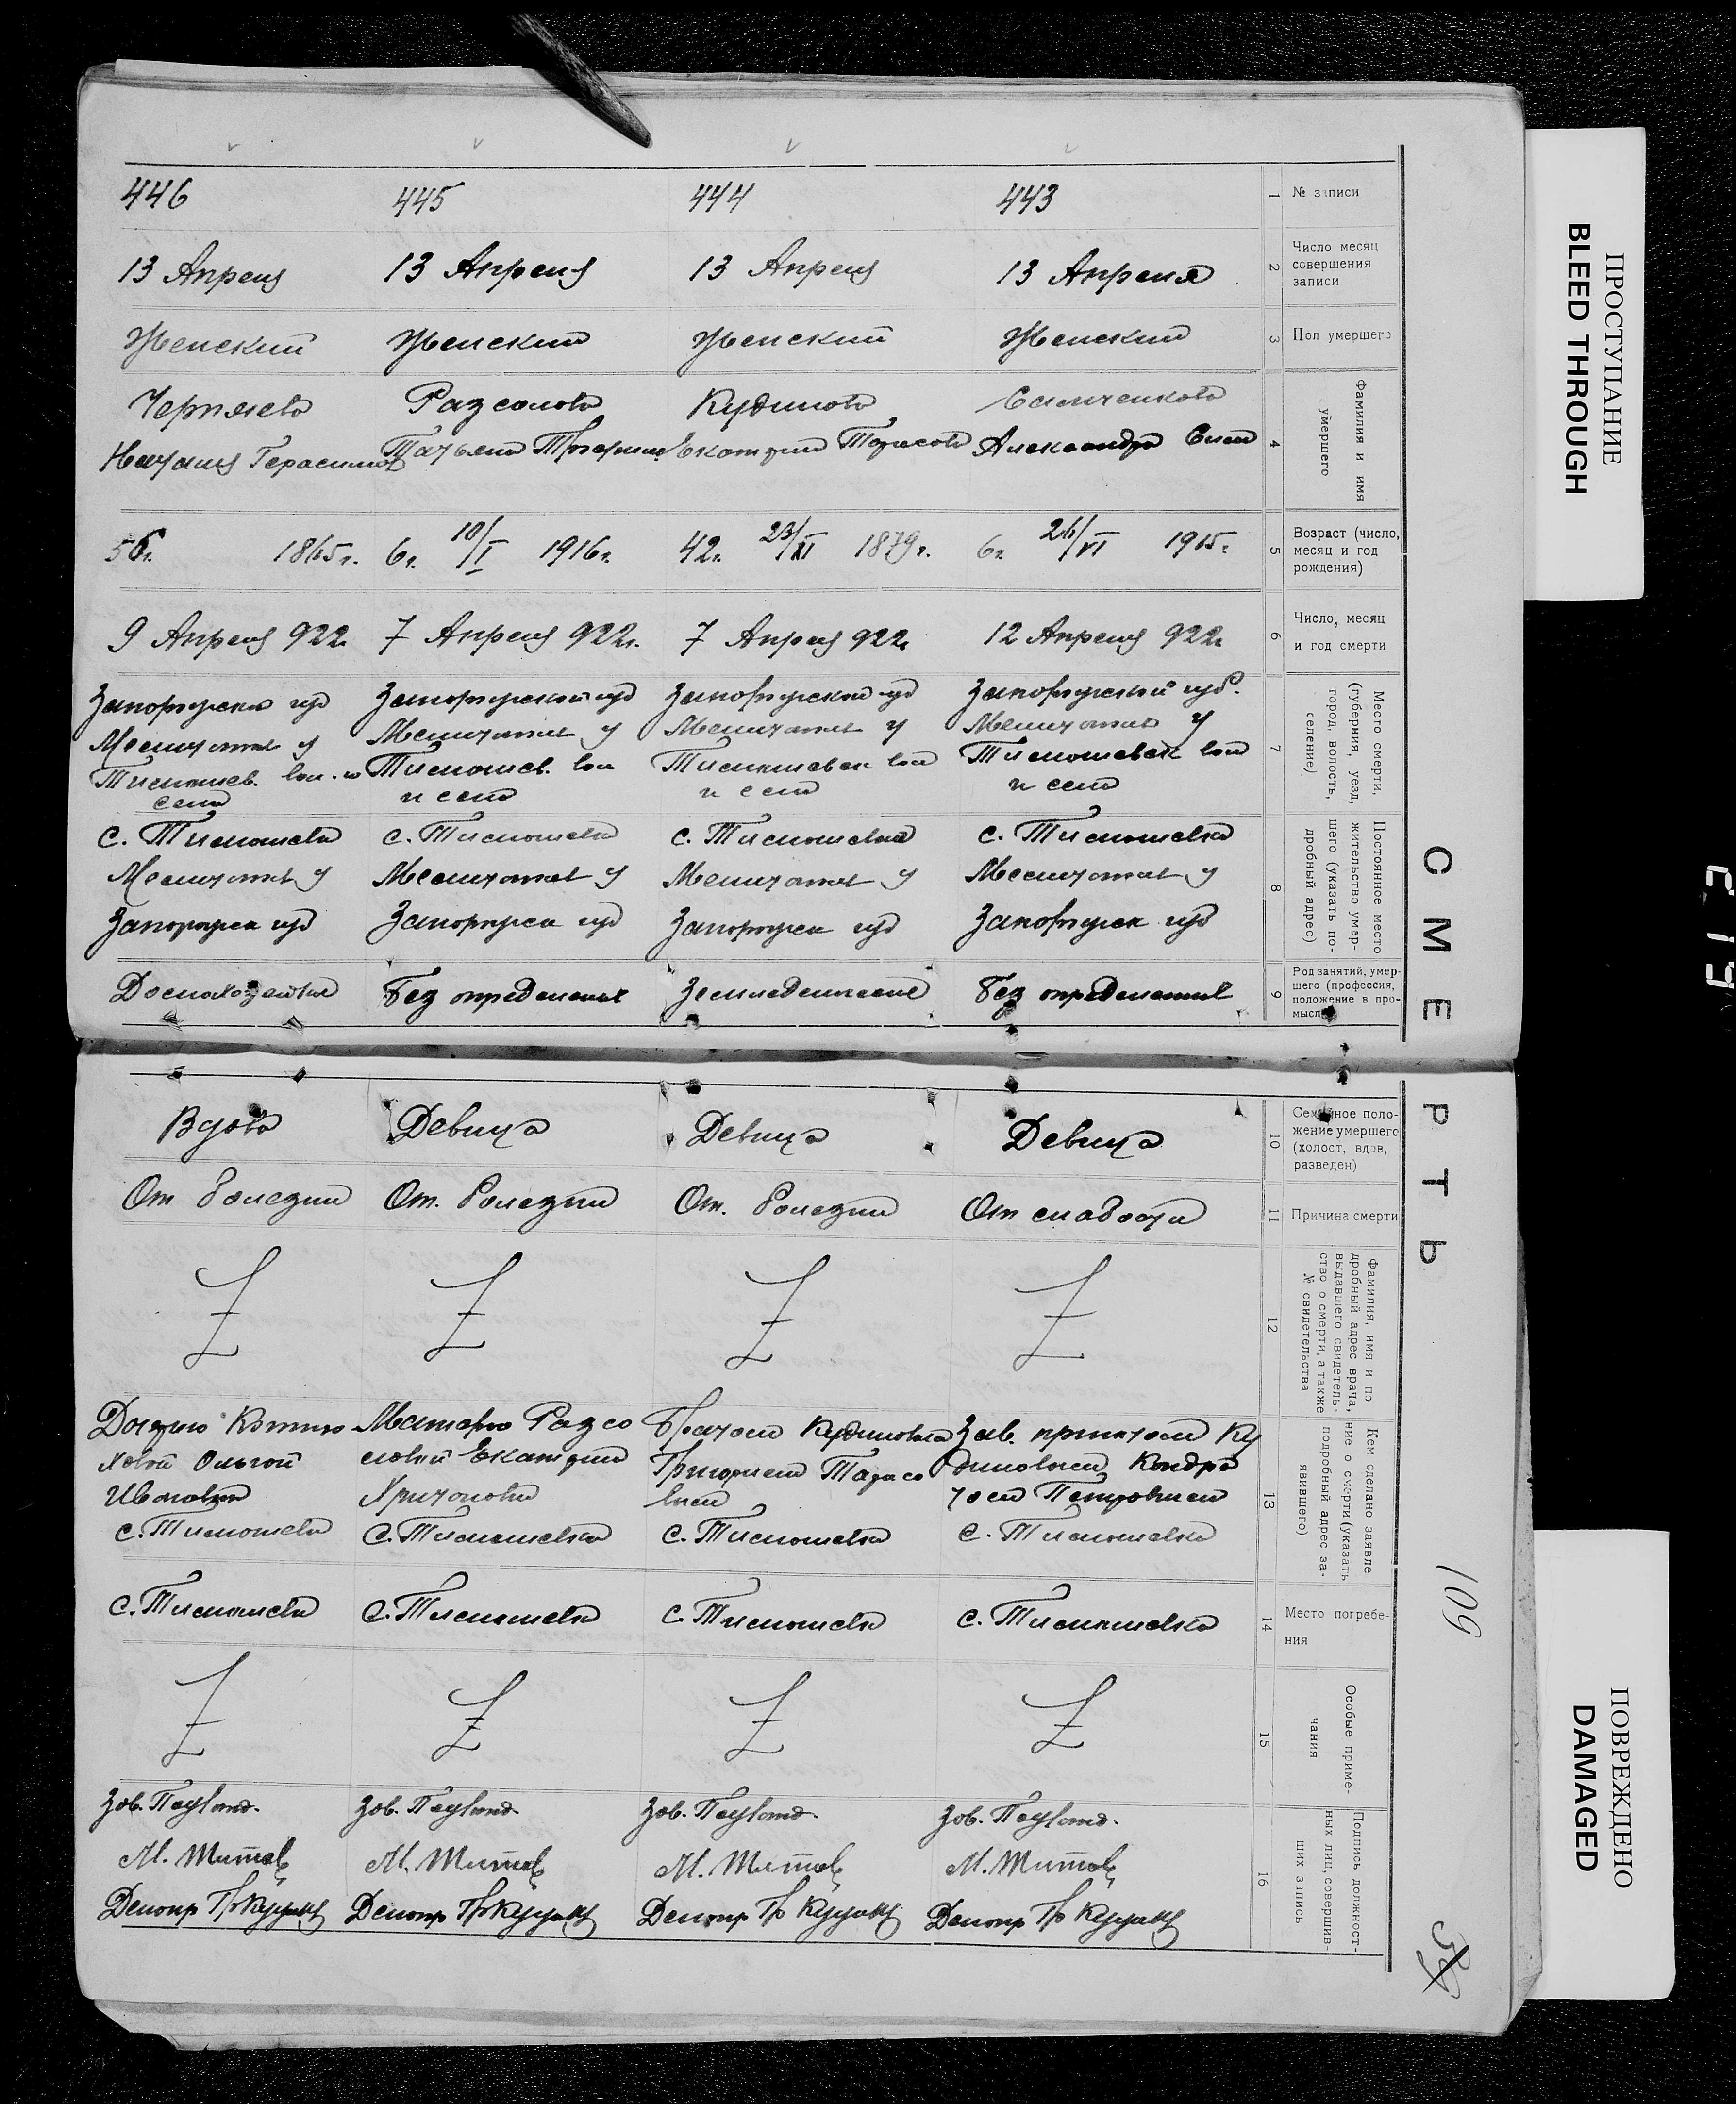 ПРОСТУПАНИЕ
BLEED THROUGH
ПОВРЕЖДЕНО
DAMAGED
СМЕРТЬ
109
1
№ записи
443
444
445
446
2
Число месяц
совершения
записи
13 Апреля
13 Апреля
13 Апреля
13 Апреля
3
Пол умершего
Женский
Женский
Женский
Женский
4
Фамилия и имя
умершего
Александра
Кудинова
Екатерина Тарасовна
Татьяна
Черняева
Наталия Герасимовна
5
Возраст (число,
месяц и год
рождения)
6г. 26/VI 1915г.
42г. 23/XI 1879г.
6г. 10/I 1916г.
56г. 1865г.
6
Число, месяц
и год смерти
12 Апреля 922г.
7 Апреля 922г.
7 Апреля 922г.
9 Апреля 922г.
7
Место смерти,
(губерния, уезд,
город, волость,
селение)
Запорожской губ.
Мелитопол у
Тимошевск вол
и село
Запорожской губ
Мелитопол у
Тимошевск вол
и село
Запорожской губ
Мелитопол у
Тимошев. вол
и село
Запорожской губ
Мелитопол у
Тимошев. вол. и
село
8
Постоянное место
жительство умер-
шего (указать по-
дробный адрес)
с. Тимошевка
Мелитопол у
Запорожск губ
с. Тимошевка
Мелитопол у
Запорожск губ
с. Тимошевка
Мелитопол у
Запорожск губ
с. Тимошевка
Мелитопол у
Запорожск губ
9
Род занятий, умер-
шего (профессия,
положение в про-
мысле)
Без определения
Земледелие
Без определения
Домохозяйка
10
Семейное поло-
жение умершего
(холост, вдов,
разведен)
Девица
Девица
Девица
Вдова
11
Причина смерти
От слабости
От. болезни
От. болезни
От болезни
12
Фамилия, имя и по
дробный адрес врача,
выдавшего свидетель-
ство о смерти, а также
№ свидетельства
Z
Z
Z
Z
13
Кем сделано заявле
ние о смерти (указать
подробный адрес за-
явившего)
Зав. приютом Ку
диновым Кондра
том Петровым
с. Тимошевка
Братом Кудиновым
Григорием Тарасо
вым
с. Тимошевка
Матерью Разсо
ловой Екатерин
с. Тимошевка
Дочерью
Ольгой
Ивановой
с. Тимошевка
14
Место погребе-
ния
с. Тимошевка
с. Тимошевка
с. Тимошевка
с. Тимошевка
15
Особые приме-
чания
Z
Z
Z
Z
16
Подпись должност-
ных лиц, совершив-
ших запись
Зав.
М. Титов
Зав.
М. Титов
Зав.
М. Титов
Зав.
М. Титов